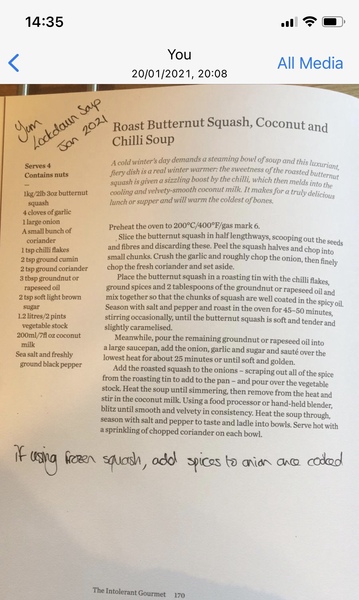 14:35
You
20/01/2021, 20:08
All Media
Yum
Lockdown Soup
Jan 2021
Roast Butternut Squash, Coconut and
Chilli Soup
A cold winter's day demands a steaming bowl of soup and this luxuriant,
fiery dish is a real winter warmer: the sweetness of the roasted butternut
squash is given a sizzling boost by the chilli, which then melds into the
cooling and velvety-smooth coconut milk. It makes for a truly delicious
lunch or supper and will warm the coldest of bones.
Serves 4
Contains nuts
—
1kg/2lb 3oz butternut
squash
4 cloves of garlic
1 large onion
A small bunch of
coriander
1 tsp chilli flakes
2 tsp ground cumin
2 tsp ground coriander
3 tbsp groundnut or
rapeseed oil
2 tsp soft light brown
sugar
1.2 litres/2 pints
vegetable stock
200ml/7fl oz coconut
milk
Sea salt and freshly
ground black pepper
Preheat the oven to 200°C/400°F/gas mark 6.
Slice the butternut squash in half lengthways, scooping out the seeds
and fibres and discarding these. Peel the squash halves and chop into
small chunks. Crush the garlic and roughly chop the onion, then finely
chop the fresh coriander and set aside.
Place the butternut squash in a roasting tin with the chilli flakes,
ground spices and 2 tablespoons of the groundnut or rapeseed oil and
mix together so that the chunks of squash are well coated in the spicy oil.
Season with salt and pepper and roast in the oven for 45–50 minutes,
stirring occasionally, until the butternut squash is soft and tender and
slightly caramelised.
Meanwhile, pour the remaining groundnut or rapeseed oil into
a large saucepan, add the onion, garlic and sugar and sauté over the
lowest heat for about 25 minutes or until soft and golden.
Add the roasted squash to the onions – scraping out all of the spice
from the roasting tin to add to the pan – and pour over the vegetable
stock. Heat the soup until simmering, then remove from the heat and
stir in the coconut milk. Using a food processor or hand-held blender,
blitz until smooth and velvety in consistency. Heat the soup through,
season with salt and pepper to taste and ladle into bowls. Serve hot with
a sprinkling of chopped coriander on each bowl.
if using frozen squash, add spices to onion once cooked
The Intolerant Gourmet 170